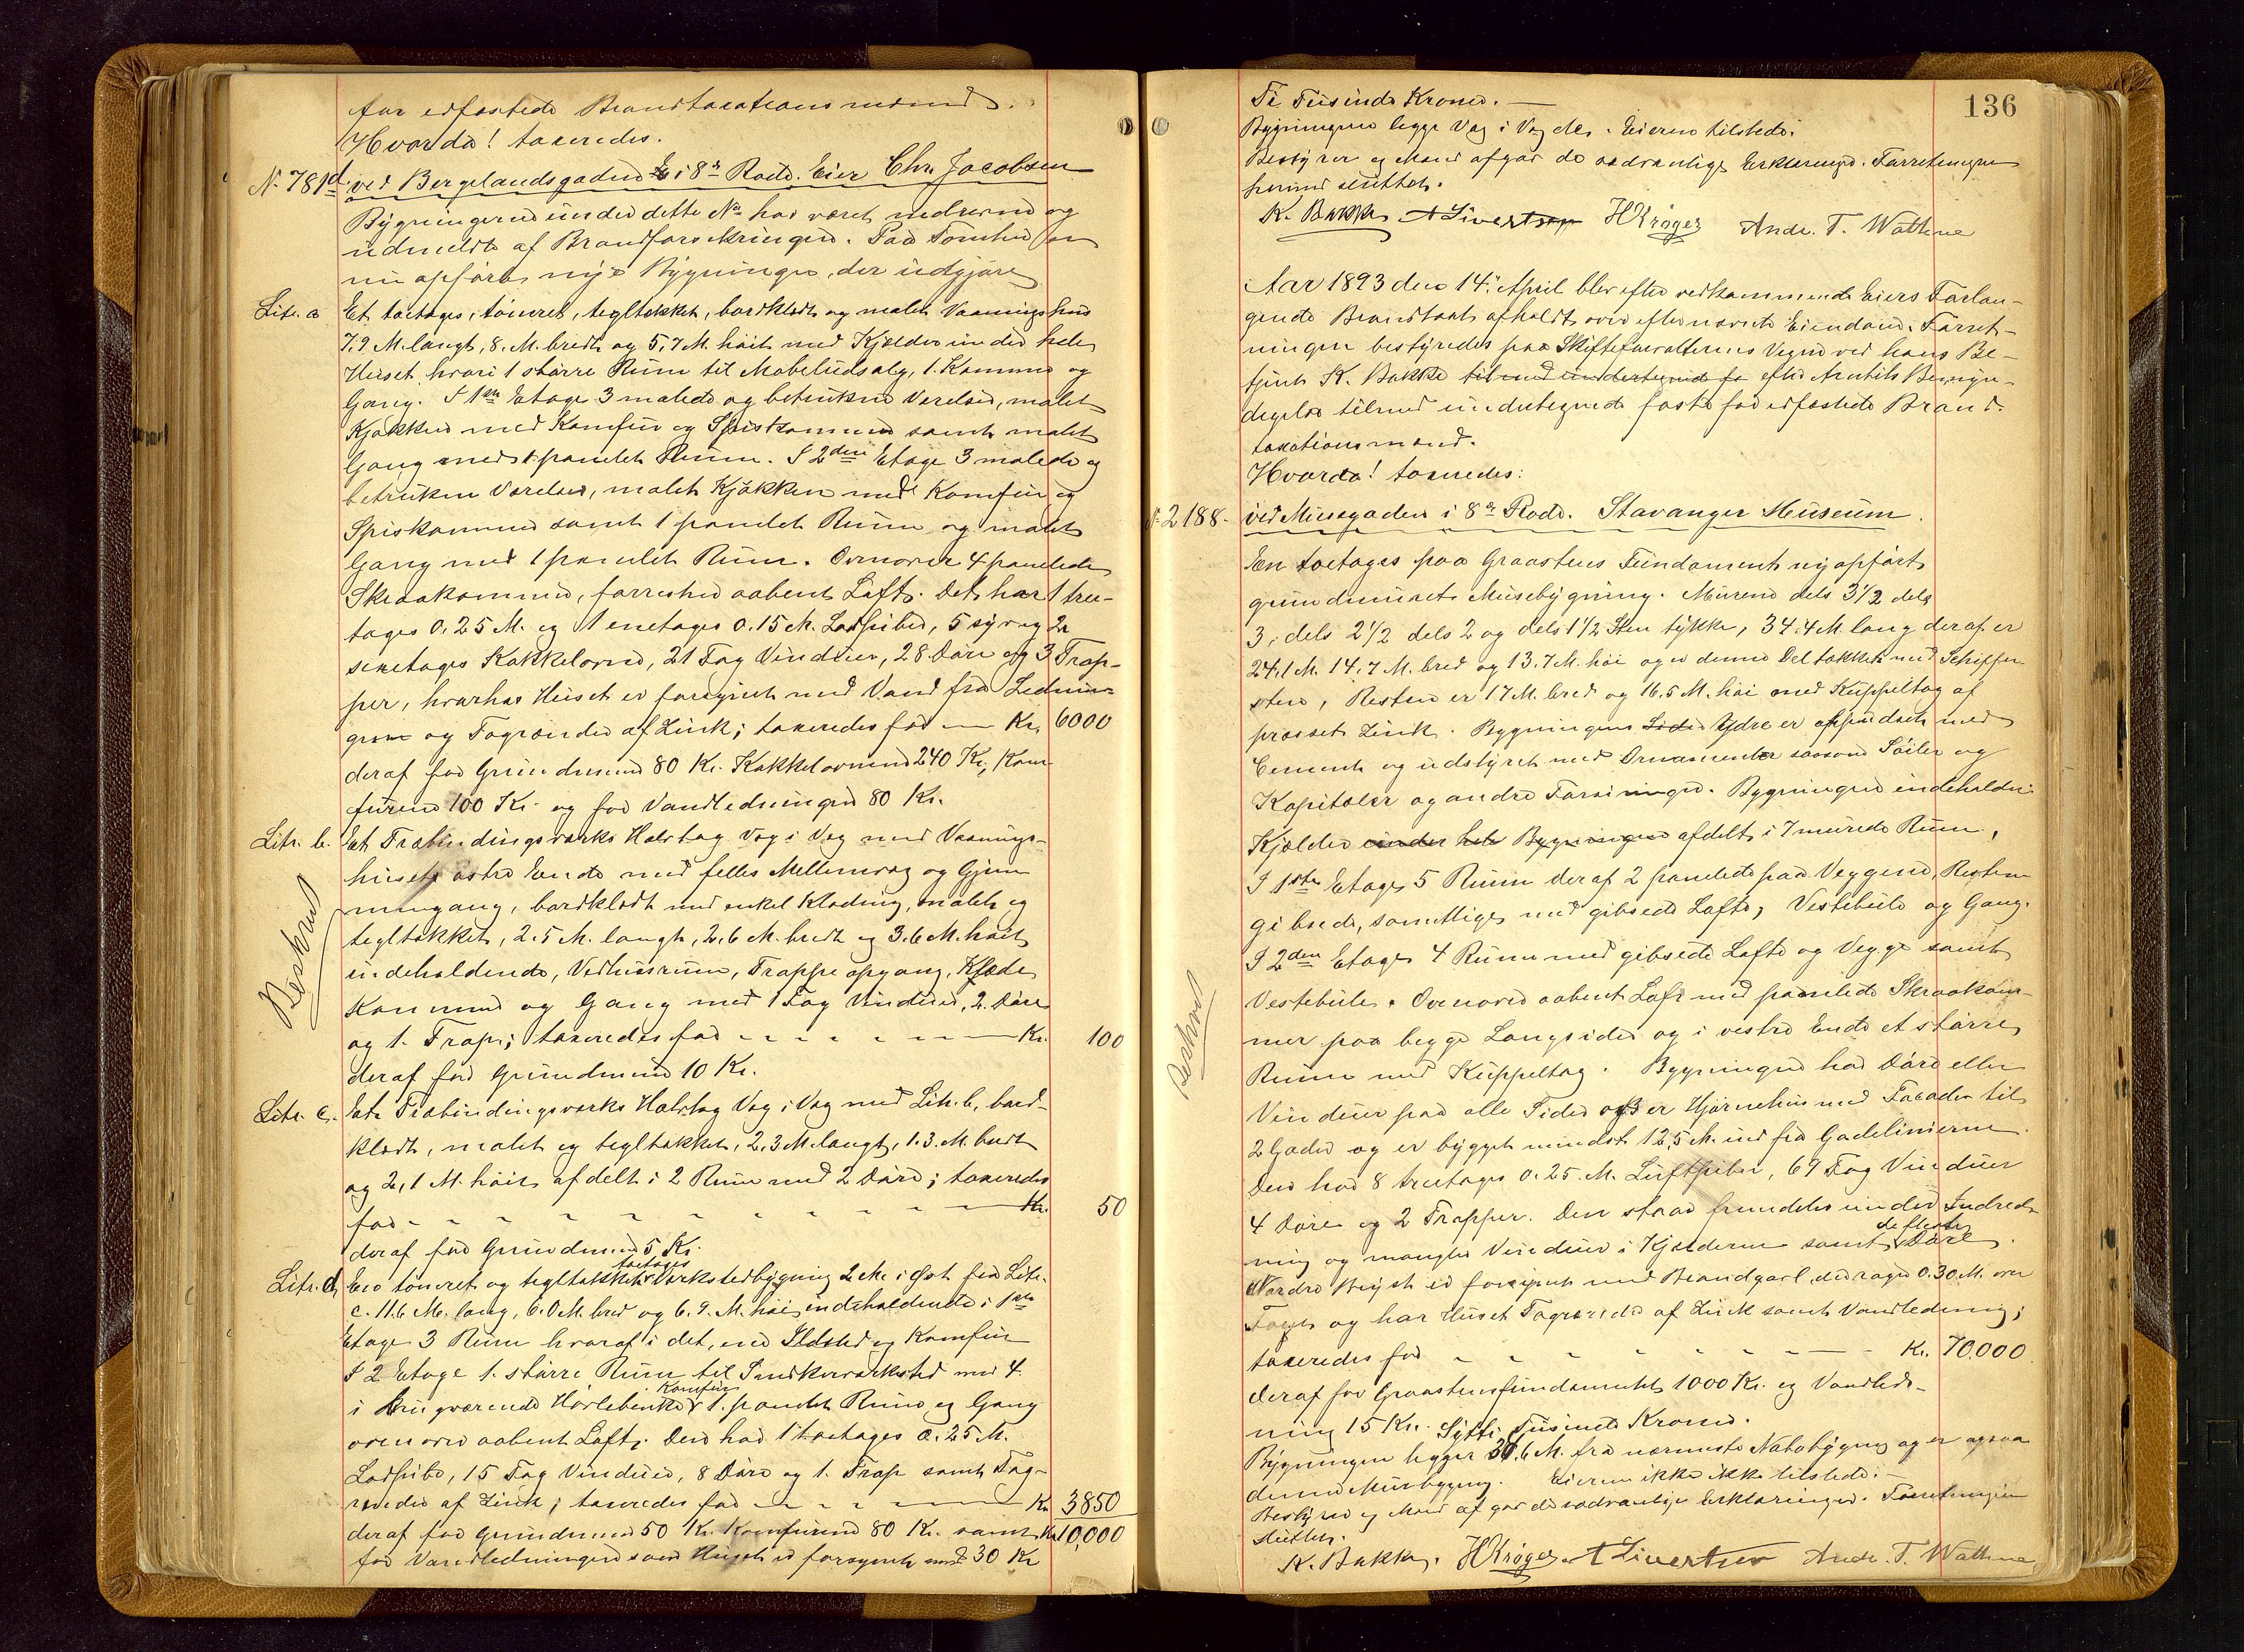 for edfæstede Brandtaxationsmænd.
Hvorda! taxeredes.
No 781d. ved Bergelandsgaden i 8de Rode. Eier Chr. Jacobsen
Bygningerne under dette No har været nedrevne og
udmeldt af Brandforsikringen. Paa Tomten er
nu opført nye Bygninger, der udgjøre
Litr. a Et toetages, tømret, tegltækket, bordklædt og malet Vaaningshus
7,9 M. langt, 8. M. bredt og 5,7 M. høit med Kjælder under hele
Huset, hvori 1 større Rum til Møbeludsalg, 1. Kammer og
Gang. I 1ste Etage 3 malede og betrukne Værelser, malet
Kjøkken med Komfur og Spiskammer samt malet
Gang med 1 panelet Rum. I 2den Etage 3 malede og
betrukne Værelser, malet Kjøkken med Komfur og
Spiskammer samt 1 panelet Rum og malet
Gang med 1 panelet Rum. Ovenover 4 panelede
Skraakammer, forresten aabent Loft. Det har 1 tre-
tages 0.25 M. og 1 enetages 0.15 M. Lodpibe, 5 syv og 2
sexetages Kakkelovne, 21 Fag Vinduer, 28 Døre og 3 Trap-
per, hvorhos Huset er forsynet med Vand fra Lednin-
gen og Tagrender af Zink; taxeredes for — Kr. 6000
deraf for Grundmuren 80 Kr. Kakkelovnene 240 Kr., Kom-
furene 100 Kr. og for Vandledningen 80 Kr.
Litr. b. Et Træbindingsværks Halvtag Væg i Væg med Vaanings-
husets østre Ende med fælles Mellemvæg og Gjen-
nemgang, bordklædt med enkel Klædning, malet og
tegltækket, 2.5 M. langt, 2.6 M. bredt og 3.6 M. høit
Beskrevet
indeholdende, Vedhusrum, Trappeopgang, Klæde
Kammer og Gang med 1 Fag Vinduer, 2. Døre
og 1. Trap; taxeredes for - - - - Kr. 100
deraf for Grundmuren 10 Kr.
Litr. c. Et Træbindingsværks Halvtag Væg i Væg med Litr. b, bord-
klædt, malet og tegltækket, 2,3 M. langt, 1.3. M. bredt
og 2,1 M. høit afdelt i 2 Rum med 2 Døre; taxeredes
for - - - - - - - - Kr. 50
deraf for Grundmuren 5 Kr.
toetages
Litr. d, En tømret og tegltækket Værkstedbygning 2 M. i Øst fra Litr.
c. 11.6 M. lang, 6.0 M. bred og 6.9. M. høi indeholdende i 1ste
Etage 3 Rum hvoraf i det, ene Ildsted og Komfur
I 2 Etage 1. større Rum til Snedkerværksted med 4.
Komfur
i Brugværende Høvlebænke 1. panelet Rum og Gang
ovenover aabent Loft. Den har 1 toetages 0.25 M.
Lodpibe, 15 Fag Vinduer, 8 Døre og 1. Trap samt Tag-
render af Zink; taxeredes for — - - — Kr 3850
deraf for Grundmuren 50 Kr. Komfurene 80 Kr. samt Kr 10,000
for Vandledningen som Huset er forsynet med 30 Kr
136
Ti Tusinde Kroner. —
Bygningerne ligge Væg i Væg dels. Eieren tilstede.
Bestyrer og Mænd afgav de sædvanlige Erklæringer. Forretningen
hermed sluttet.
K. Bakke A Sivertsen H Krøger Andr. T. Wathne
Aar 1893 den 14. April blev efter vedkommende Eiers Forlan-
gende Brandtaxt afholdt over efternævnte Eiendom. Forret-
ningen bestyredes paa Skifteforvalterens Vegne ved hans Be-
tjent K. Bakke til med undertegnede fo efter Amtets Bemyn-
digelse tilmed undertegnede faste for edfæstede Brand-
taxationsmænd.
Hvorda! taxeredes:
No. 2188. ved Musegaden i 8de Rode. Stavanger Museum.
En toetages paa Graastens Fundament nyopført
grundmuret Musebygning. Murene dels 3 1/2 dels
3, dels 2 1/2 dels 2 og dels 1 1/2 Sten tykke, 34.4 M. lang deraf er
24,1 M. 14,7 M. bred og 13.7 M. høi og er denne Del tækket med Schiffer-
sten, Resten er 17 M. bred og 16.5 M. høi med Kuppeltag af
presset Zink. Bygningens Sider Ydre er afpudset med
Cement og udstyret med Ornamenter saasom Søiler og
Kapitæler og andre Forsiringer. Bygningen indeholder:
Kjælder under hele Bygningen afdelt i 7 murede Rum,
I 1ste Etage 5 Rum deraf 2 panelede paa Væggene, Resten
gibsede, samtlige med gibsede Lofte, Vestibule og Gang.
I 2den Etage 4 Rum med gibsede Lofte og Vægge samt
Vestibule. Ovenover aabent Loft med panelede Skraakam-
Beskrevet
mer paa begge Langsider og i vestre Ende et større
Rum med Kuppeltag. Bygningen har Døre eller
Vinduer paa alle Sider og er Hjørnehus med Facader til
2 Gader og er bygget mindst 12,5 M. ind fra Gadelinierne.
Den har 8 tretages 0.25 M. Luftpiber, 69 Fag Vinduer
4 Døre og 2 Trapper. Den staar fremdeles under Indred-
de fleste
ning og mangler Vinduer i Kjælderen samt Døre.
Nordre Bryst er forsynet med Brandgavl, der rager 0.30 M. over
Taget og har Huset Tagrender af Zink samt Vandledning;
taxeredes for - - - - - - - Kr. 70,000.
deraf for Graastensfundamentet 1000 Kr. og Vandled-
ning 15 Kr. Sytti Tusinde Kroner.
Bygningen ligger 31.6 M. fra nærmeste Nabobygning og er ogsaa
denne Murbygning. Eieren ikke ikke tilstede.
Bestyrer og Mænd afgav de sædvanlige Erklæringer. Forretningen
sluttet.
K. Bakke. H Krøger A Sivertsen Andr. T. Wathne